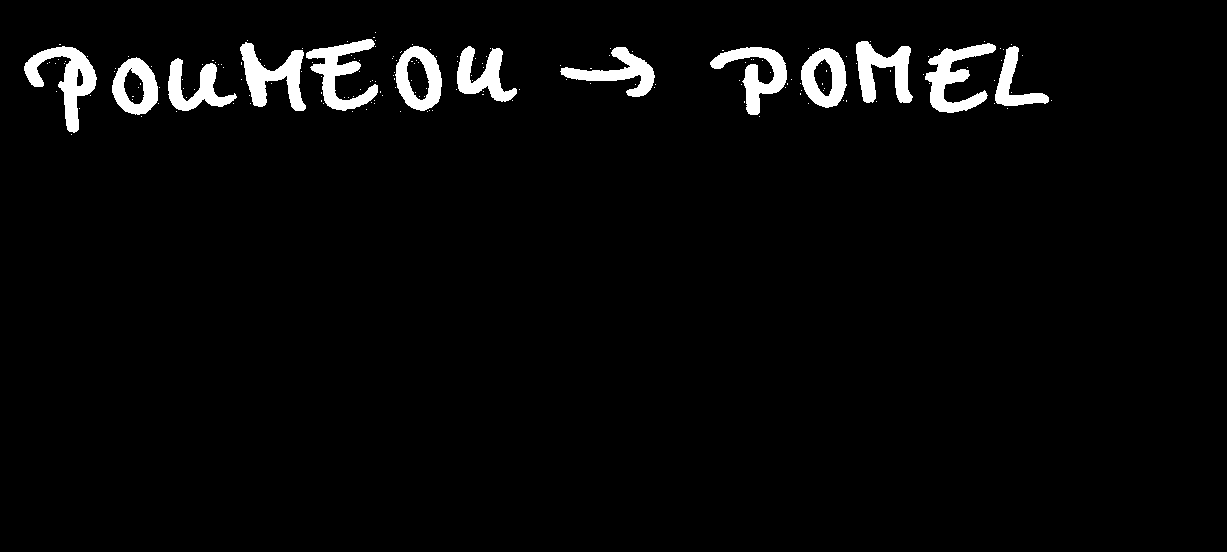 POUMEOU → POMEL